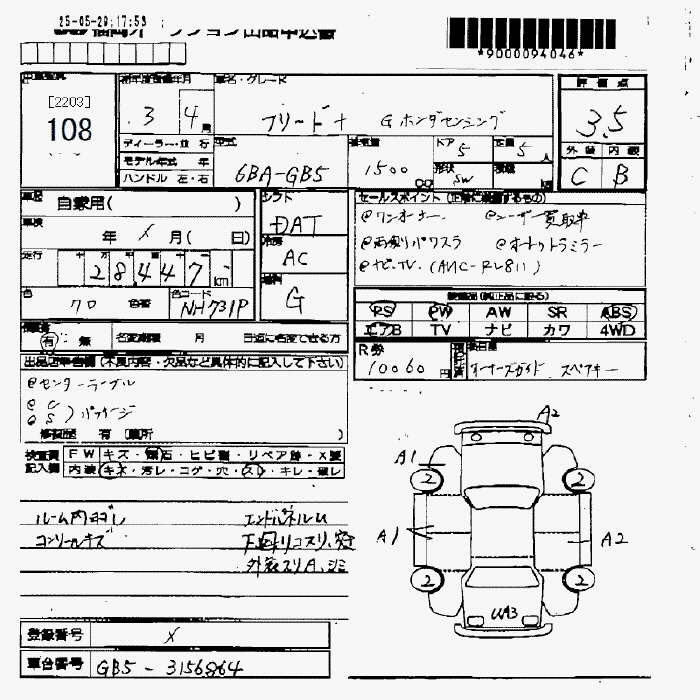 25-05-29;17:53
*9000094046*
[2203]
108
初年度登録年月
3 4月
車名・グレード
フリード+ Gホンダセンシング
評価点
3.5
ディーラー・並行
モデル年式 年
ハンドル 左・右
型式
6BA-GB5
排気量
1500 cc
ドア
5
定員
5人
形状
SW
外装 内装
C B
車歴
自家用( )
車検
年 X 月( 日)
走行
28447 km
色
クロ
色番
色コード
NH731P
シフト
DAT
冷房
AC
燃料
G
セールスポイント(正常に装備するもの)
@ワンオーナー @ユーザー買取車
@両側パワスラ @オートリトラミラー
@ナビ・TV(ANC-RL811)
装備品(純正品に限る)
PS PW AW SR ABS
エアB TV ナビ カワ 4WD
有・無
名変期限 月 日迄に名変できる方
R券
10060円
オーナーズガイド スペアキー
出品店申告欄(不具内容・欠品など具体的に記入して下さい)
@センターテーブル
@C
@S )パッケージ
修復歴 有(箇所 )
検査員 FW キズ・飛石・ヒビ割・リペア跡・X要
記入欄 内装 キズ・汚レ・コゲ・穴・スレ・キレ・破レ
ルーム内ヨゴレ エンドパネルU
コンソールキズ 下回リコスリ、
外装スリA、シミ
A2
A1
2 2
A1 A2
2 2
UA3
登録番号 X
車台番号 GB5-3156864